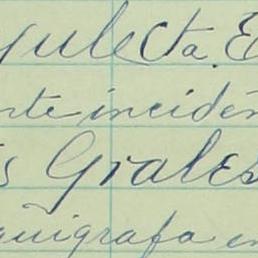 yulecta. E
nte inciden
s Grales
quigrafa en